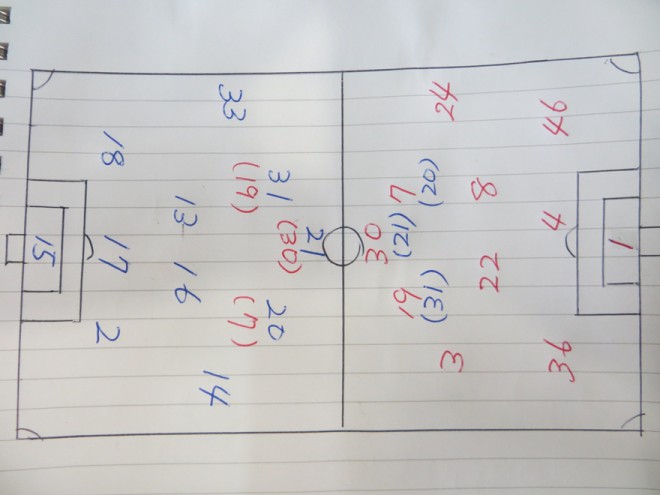 33
18
31
(19)
13
21
(30)
17
15
16
20
(7)
2
14
24
46
7
(20)
8
30
(21)
4
1
19
(31)
22
3
36